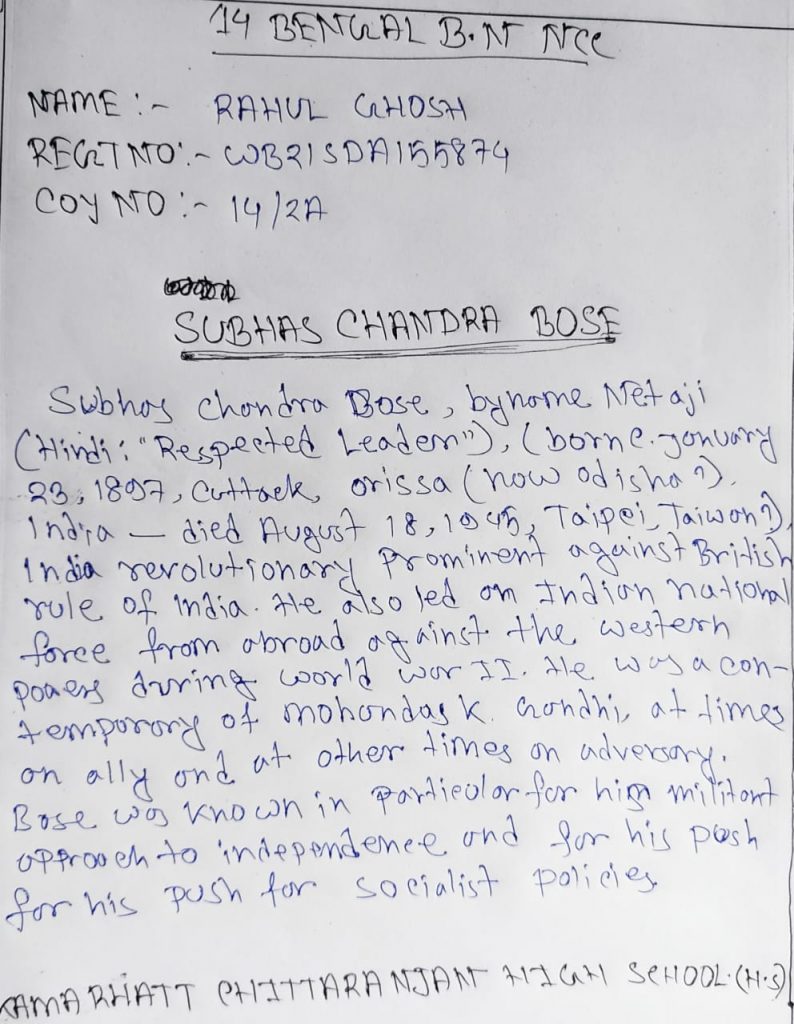 14 BENGAL B.N NCC
NAME :- RAHUL GHOSH
REGT NO :- WB21SDA155874
COY NO :- 14/2A
SUBHAS CHANDRA BOSE
Subhas Chandra Bose, byname Netaji
(Hindi: "Respected Leader"), (born c. january
23, 1897, Cuttack, orissa (now odisha?).
India — died August 18, 1945, Taipei, Taiwan?),
India revolutionary prominent against British
rule of India. He also led an Indian national
force from abroad against the western
powers during world war II. He was a con-
temporary of mohandas k. Gandhi, at times
an ally and at other times an adversary.
Bose was known in particular for his militant
approach to independence and for his push
for his push for socialist policies
KAMARHATT CHITTARANJAN HIGH SCHOOL.(H.S)